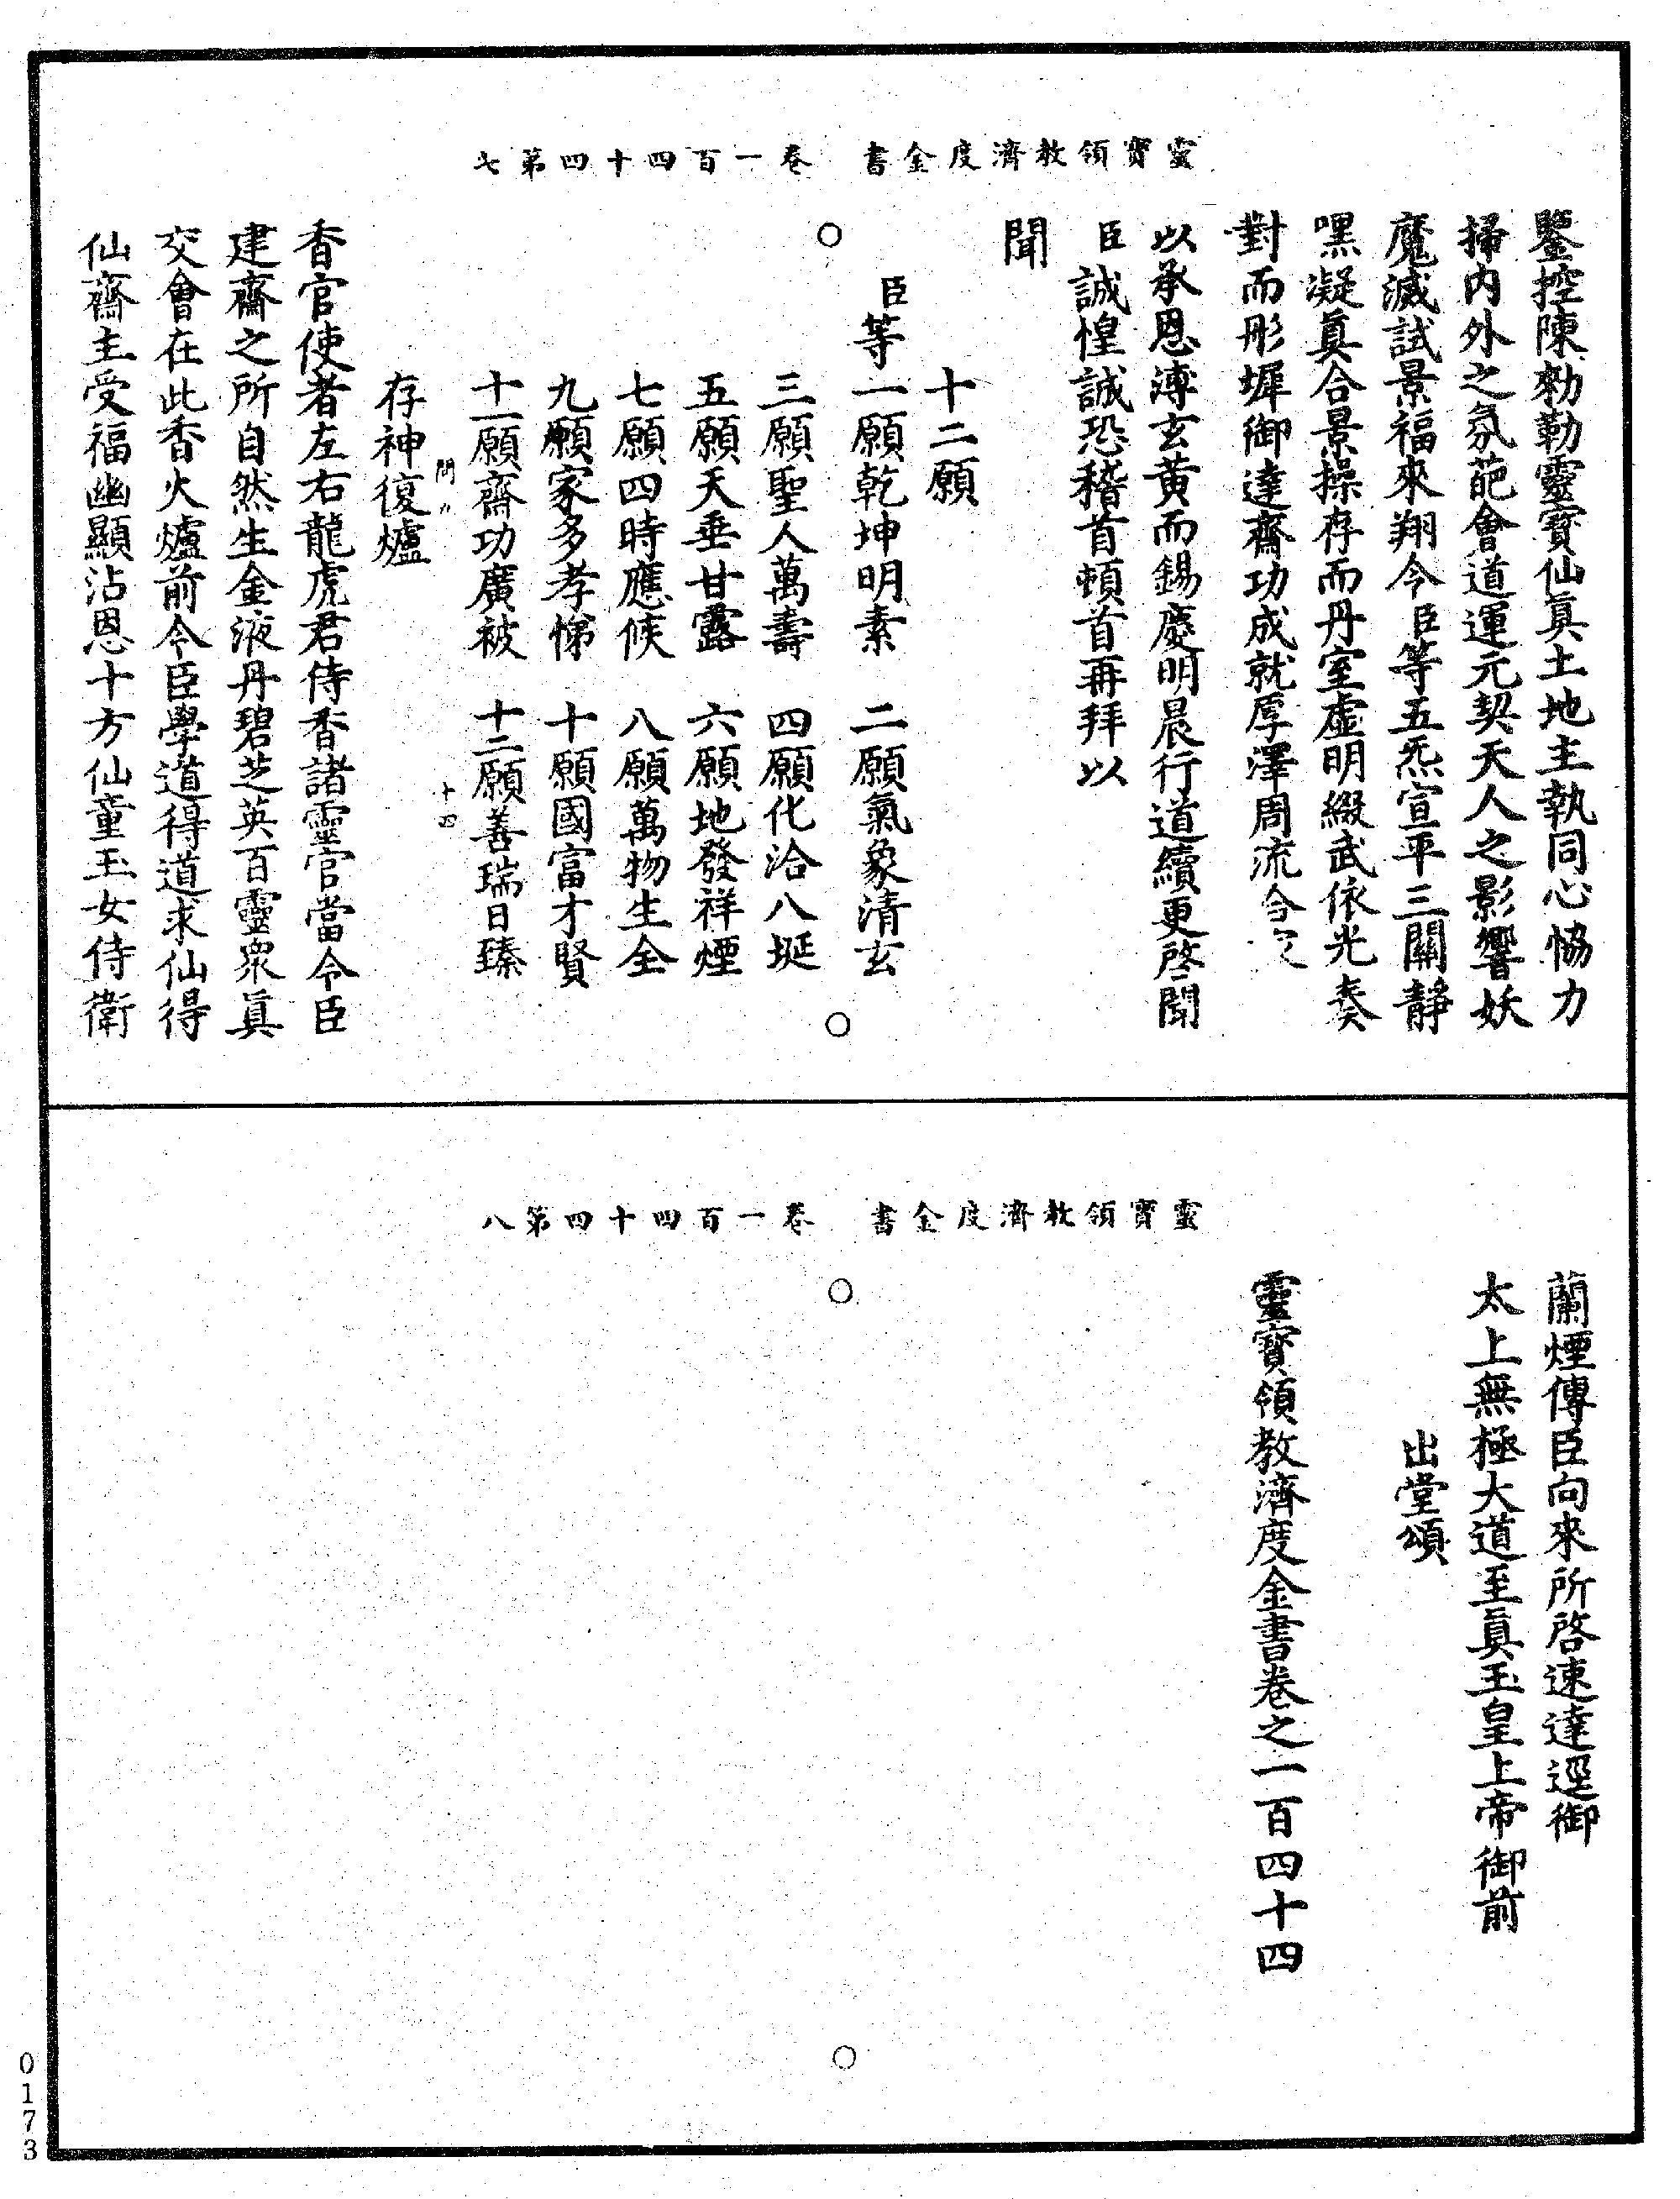 靈寶領教濟度金書　卷一百四十四第七
鑒控陳勑勒靈寶仙眞土地主執同心恊力
掃內外之氛葩會道運元契天人之影響妖
魔滅試景福來翔今臣等五炁宣平三關靜
嘿凝眞合景操存而丹室虛明綴武依光奏
對而彤墀御達齋功成就厚澤周流
以承恩溥玄黃而錫慶明晨行道續更啓聞
臣誠惶誠恐稽首頓首再拜以
聞
十二願
臣等一願乾坤明素　二願氣象清玄
三願聖人萬壽　四願化洽八埏
五願天垂甘露　六願地發祥煙
七願四時應候　八願萬物生全
九願家多孝悌　十願國富才賢
十一願齋功廣被　十二願善瑞日臻
十四
存神復爐
香官使者左右龍虎君侍香諸靈官當令臣
建齋之所自然生金液丹碧芝英百靈衆眞
交會在此香火爐前令臣學道得道求仙得
仙齋主受福幽顯沾恩十方仙童玉女侍衛
靈寶領教濟度金書　卷一百四十四第八
蘭煙傳臣向來所啓速達逕御
太上無極大道至眞玉皇上帝御前
出堂頌
靈寶領教濟度金書卷之一百四十四
0173